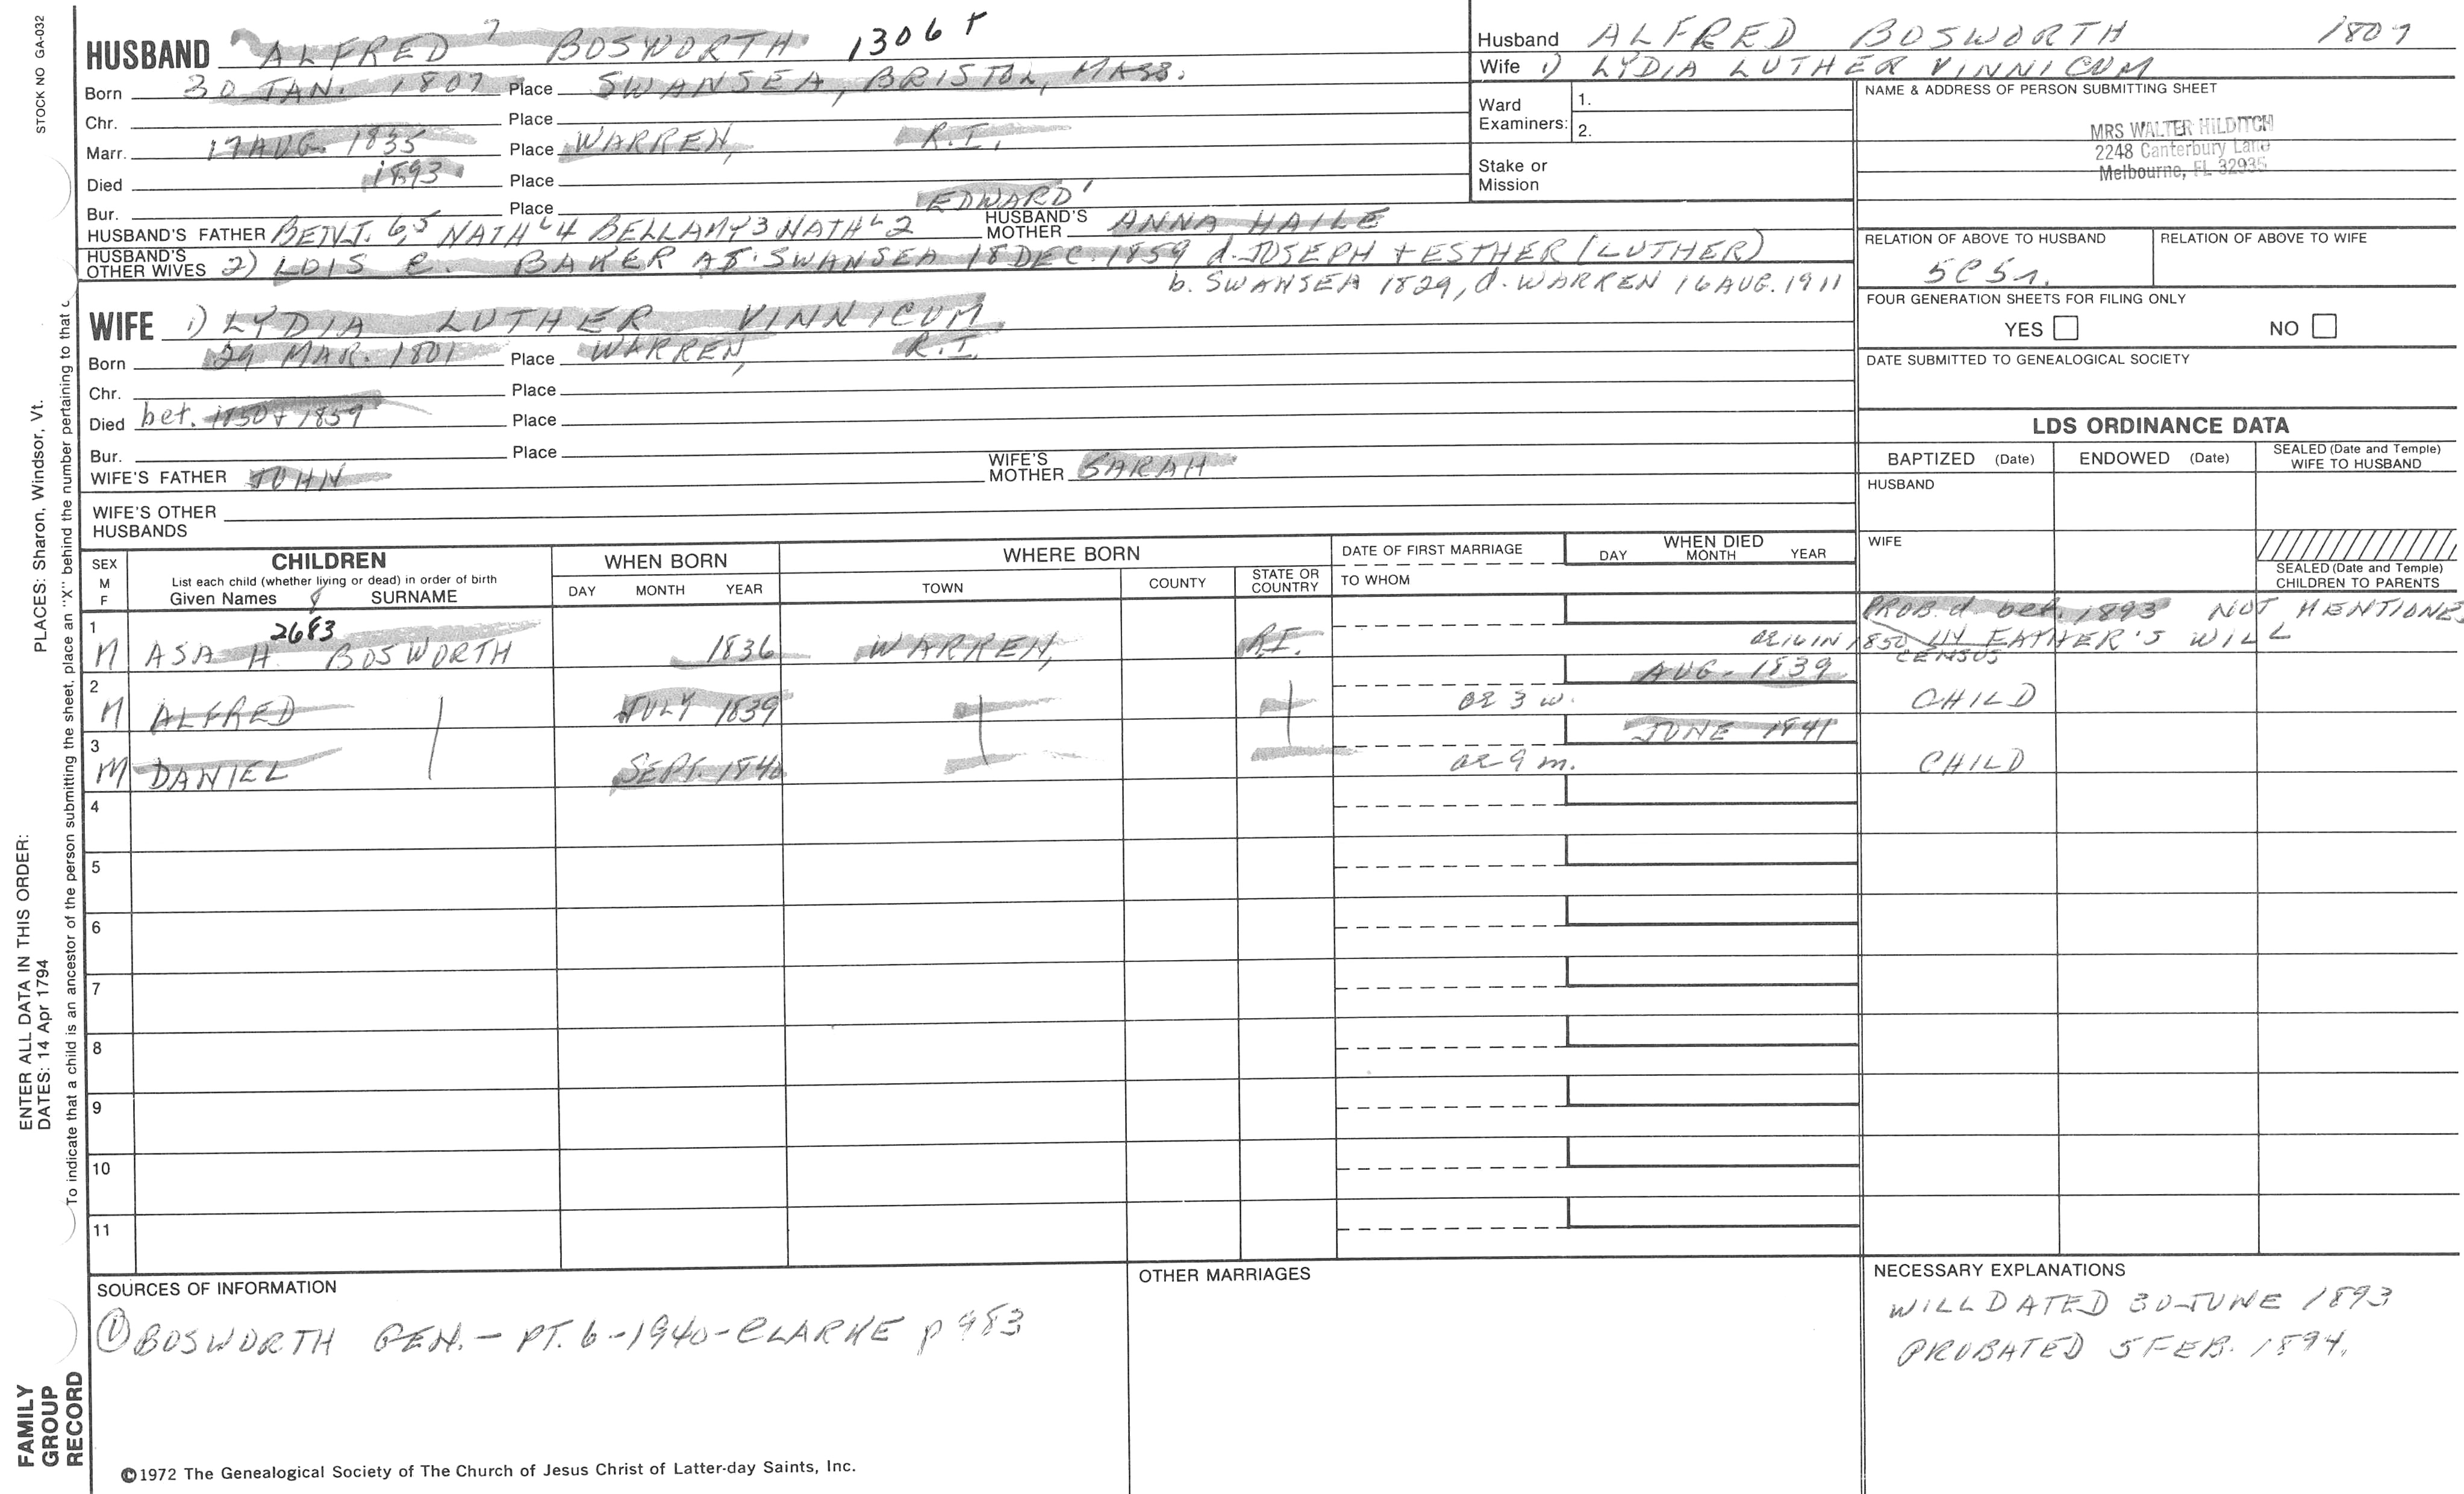 STOCK NO GA-032
HUSBAND ALFRED 7 BOSWORTH 1306 +
Born 30 JAN. 1807 Place SWANSEA, BRISTOL, MASS.
Chr. Place
Marr. 17 AUG. 1835 Place WARREN, R.I.
Died 1893 Place
Bur. Place
HUSBAND'S FATHER BENJ. 6,5 NATH L 4 BELLAMY 3 NATH L 2 EDWARD 1 HUSBAND'S MOTHER ANNA HAILE
HUSBAND'S OTHER WIVES 2) LOIS E. BAKER AT SWANSEA 18 DEC. 1859 d. JOSEPH + ESTHER (LUTHER)
b. SWANSEA 1829, d. WARREN 16 AUG. 1911
WIFE 1) LYDIA LUTHER VINNICUM
Born 29 MAR. 1801 Place WARREN, R.I.
Chr. Place
Died bet. 1850 + 1859 Place
Bur. Place
WIFE'S FATHER JOHN WIFE'S MOTHER SARAH
WIFE'S OTHER HUSBANDS
Husband ALFRED BOSWORTH 1807
Wife 1) LYDIA LUTHER VINNICUM
Ward Examiners: 1.
2.
Stake or Mission
NAME & ADDRESS OF PERSON SUBMITTING SHEET
MRS WALTER HILDITCH
2248 Canterbury Lane
Melbourne, FL 32935
RELATION OF ABOVE TO HUSBAND RELATION OF ABOVE TO WIFE
5C5r.
FOUR GENERATION SHEETS FOR FILING ONLY
YES NO
DATE SUBMITTED TO GENEALOGICAL SOCIETY
LDS ORDINANCE DATA
BAPTIZED (Date) ENDOWED (Date) SEALED (Date and Temple) WIFE TO HUSBAND
HUSBAND
WIFE
SEALED (Date and Temple) CHILDREN TO PARENTS
SEX M F CHILDREN
List each child (whether living or dead) in order of birth
Given Names SURNAME
WHEN BORN DAY MONTH YEAR
WHERE BORN TOWN COUNTY STATE OR COUNTRY
DATE OF FIRST MARRIAGE
TO WHOM
WHEN DIED DAY MONTH YEAR
1 M ASA H 2683 BOSWORTH 1836 WARREN, R.I. PROB. d. bef. 1893 NOT MENTIONED
IN 1850 CENSUS IN FATHER'S WILL
2 M ALFRED JULY 1839 AUG. 1839 3 w. CHILD
3 M DANIEL SEPT. 1840 JUNE 1841 9 m. CHILD
4
5
6
7
8
9
10
11
SOURCES OF INFORMATION
① BOSWORTH GEN. - PT. 6 - 1940 - CLARKE p 983
OTHER MARRIAGES
NECESSARY EXPLANATIONS
WILL DATED 30 JUNE 1893
PROBATED 5 FEB. 1894.
©1972 The Genealogical Society of The Church of Jesus Christ of Latter-day Saints, Inc.
FAMILY GROUP RECORD
ENTER ALL DATA IN THIS ORDER:
DATES: 14 Apr 1794
PLACES: Sharon, Windsor, Vt.
To indicate that a child is an ancestor of the person submitting the sheet, place an "X" behind the number pertaining to that